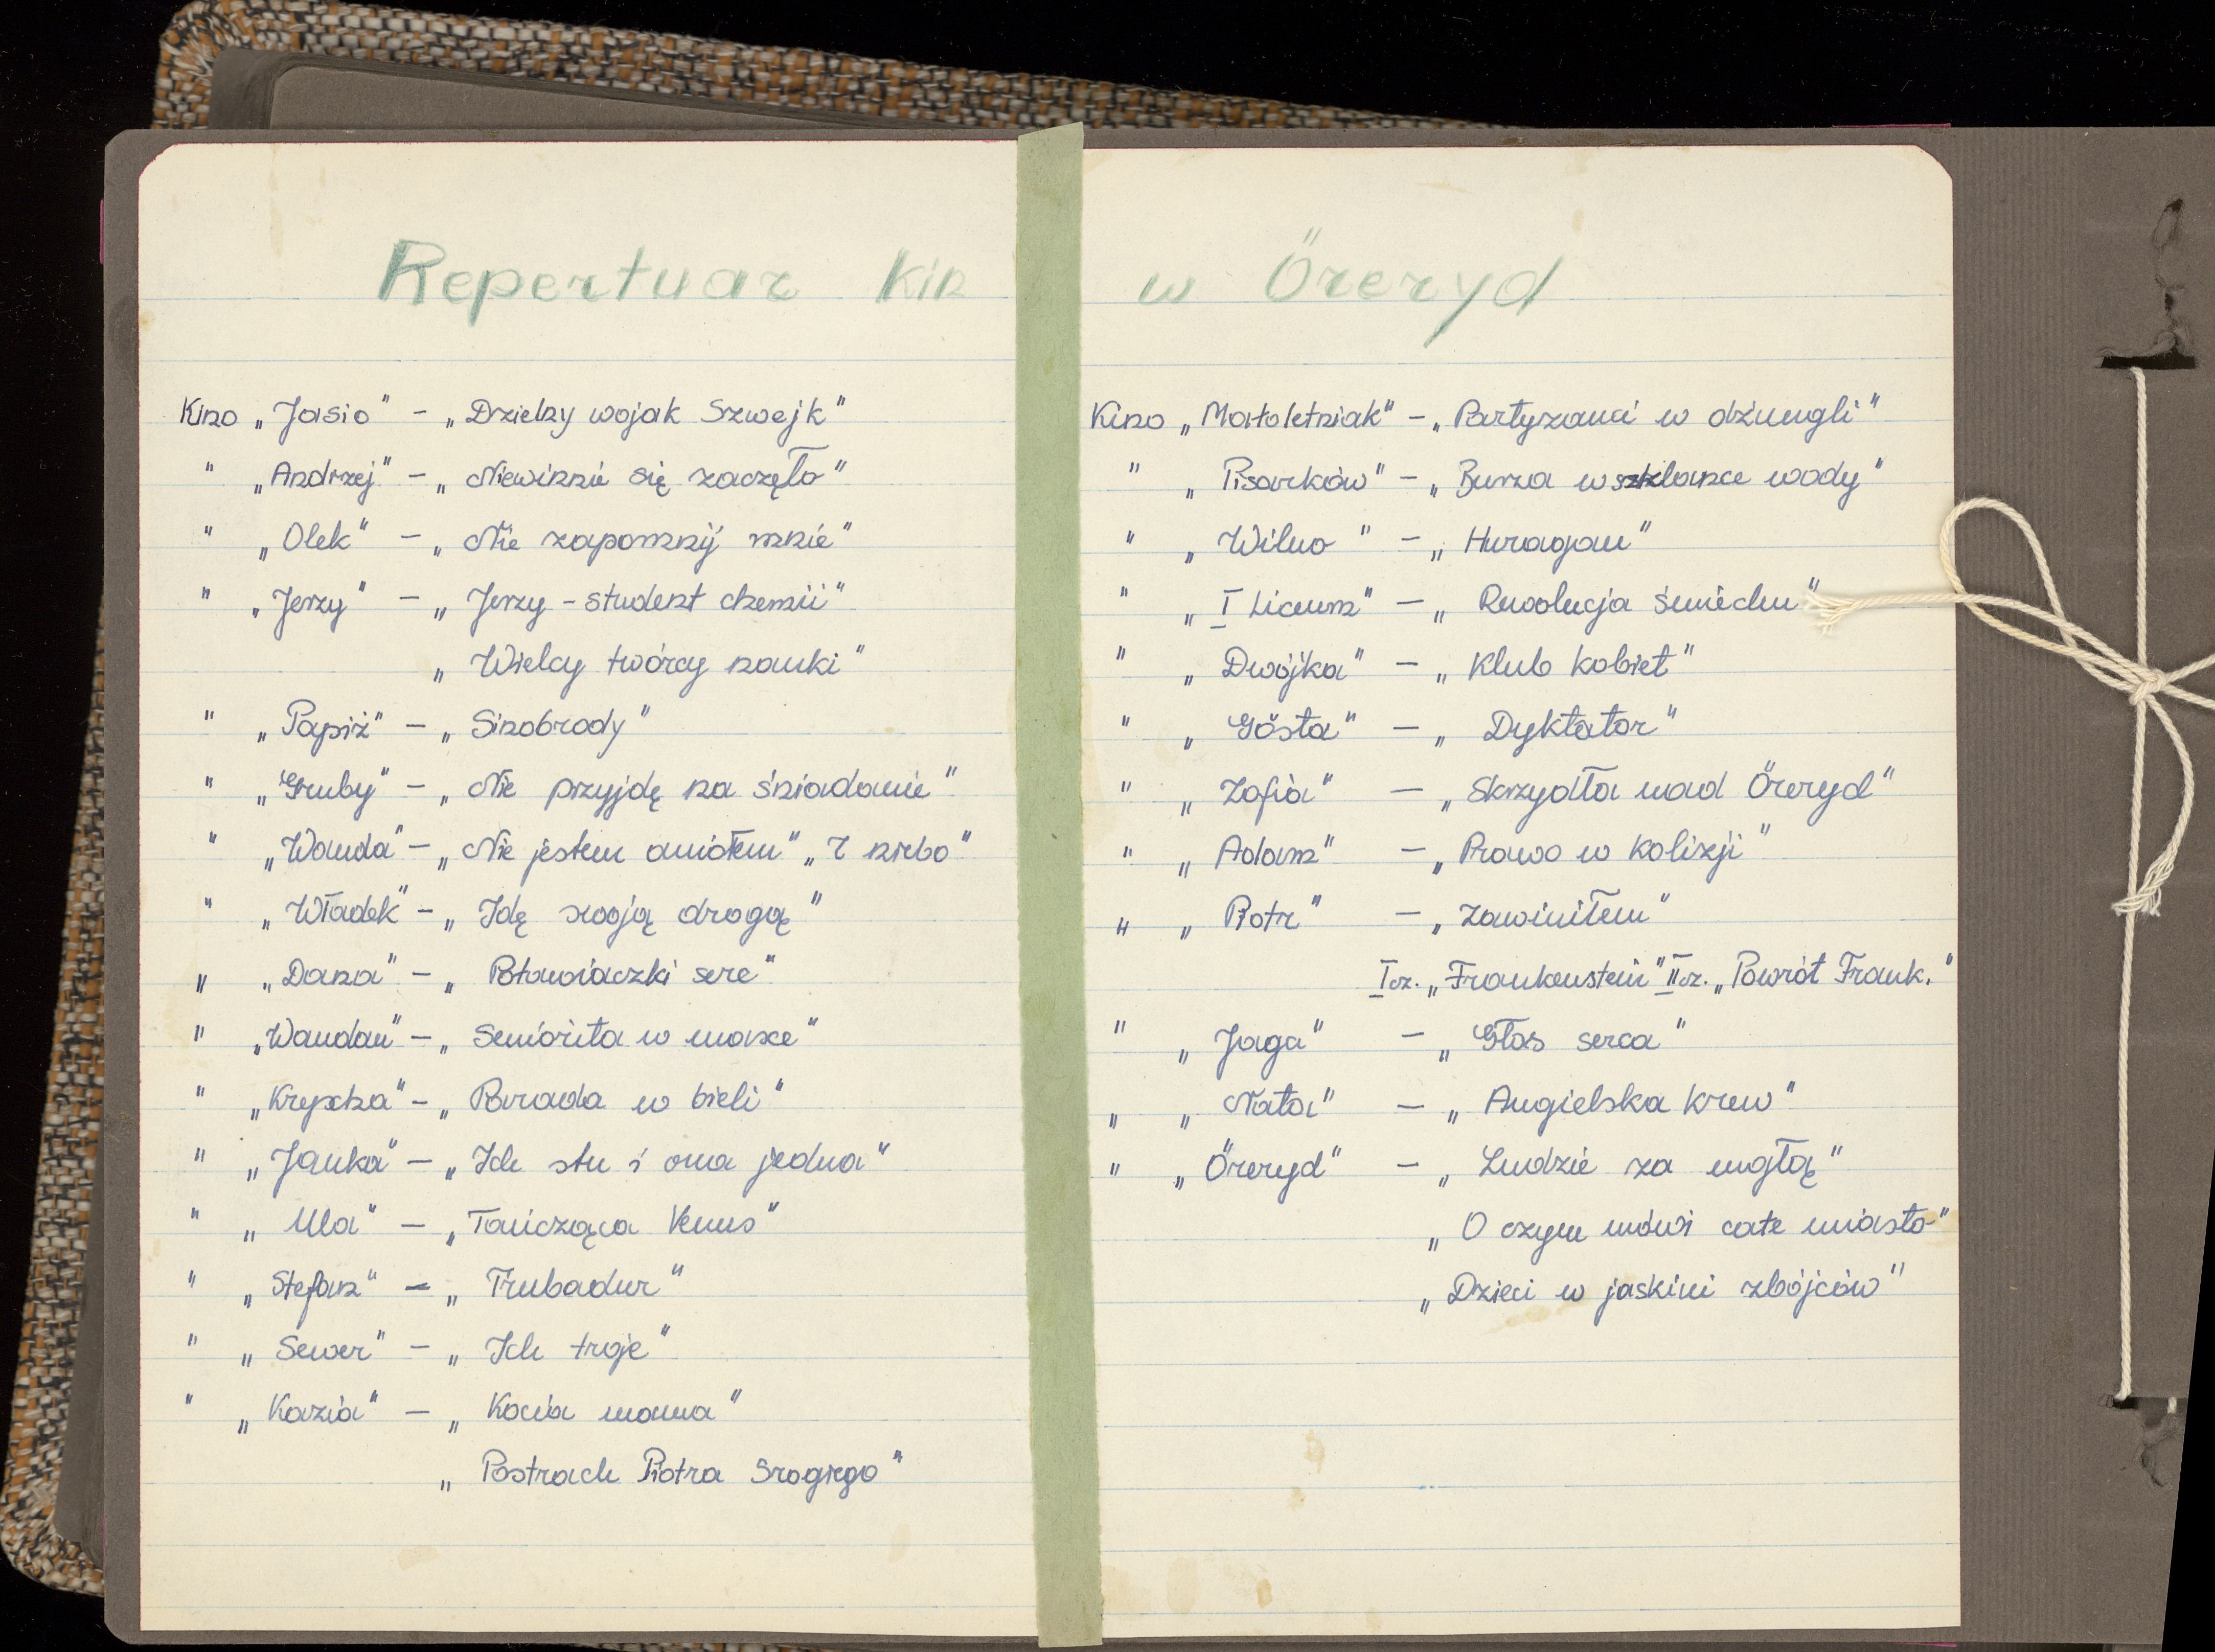 Repertuar kin w Öreryd
Kino „Jasio" – „Dzielny wojak Szwejk"
" „Andrzej" – „Niewinnie się zaczęło"
" „Olek" – „Nie zapomnij mnie"
" „Jerzy" – „Jerzy – student chemii"
„Wielcy twórcy nauki"
" „Papiż" – „Sinobrody"
" „Gruby" – „Nie przyjdę na śniadanie"
" „Wanda" – „Nie jestem aniołem" „7 niebo"
" „Władek" – „Idę swoją drogą"
" „Dana" – „Poławiaczki serc"
" „Wandan" – „Seniorita w masce"
" „Krysza" – „Parada w bieli"
" „Janka" – „Ich stu i ona jedna"
" „Ula" – „Tańcząca Venus"
" „Stefan" – „Trubadur"
" „Sewer" – „Ich troje"
" „Kazia" – „Kocia mama"
„Postrach Piotra Srogiego"
Kino „Małoletniak" – „Partyzanci w dżungli"
" „Pisarków" – „Burza w szklance wody"
" „Wilno" – „Huragan"
" „I Liceum" – „Rewolucja śmiechu"
" „Dwójka" – „Klub kobiet"
" „Gösta" – „Dyktator"
" „Zofia" – „Skrzydła nad Öreryd"
" „Adam" – „Prawo w kolizji"
" „Piotr" – „Zawiniłem"
I cz. „Frankenstein" II cz. „Powrót Frank."
" „Jaga" – „Głos serca"
" „Nata" – „Angielska krew"
" „Öreryd" – „Ludzie za mgłą"
„O czym mówi całe miasto"
„Dzieci w jaskini zbójców"